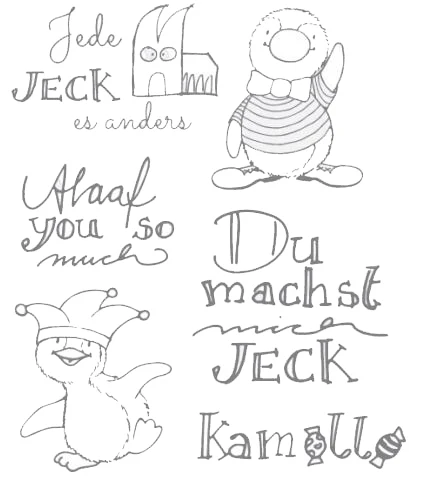 Jede
JECK
es anders
Alaaf
you so
much
Du
machst
mich
JECK
Kamelle